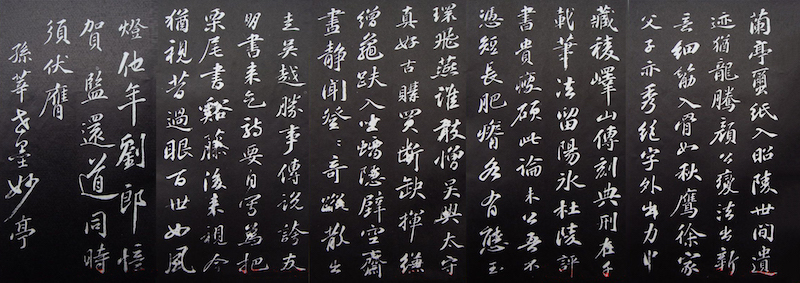 蘭亭蠒紙入昭陵世間遺
迹猶龍騰顏公變法出新
意細筋入骨如秋鷹徐家
父子亦秀絕字外出力中
藏稜嶧山傳刻典刑在千
載筆法留陽冰杜陵評
書貴瘦硬此論未公吾不
憑短長肥瘠各有態玉
環飛燕誰敢憎吳興太守
真好古購買斷缺揮縑
繒龜趺入坐螭隱壁空齋
晝靜聞登〻奇蹤散出
走吳越勝事傳說誇友
朋書來乞詩要自寫為把
栗尾書谿藤後來視今
猶視昔過眼百世如風
燈他年劉郎憶
賀監還道同時
須伏膺
孫莘老墨妙亭